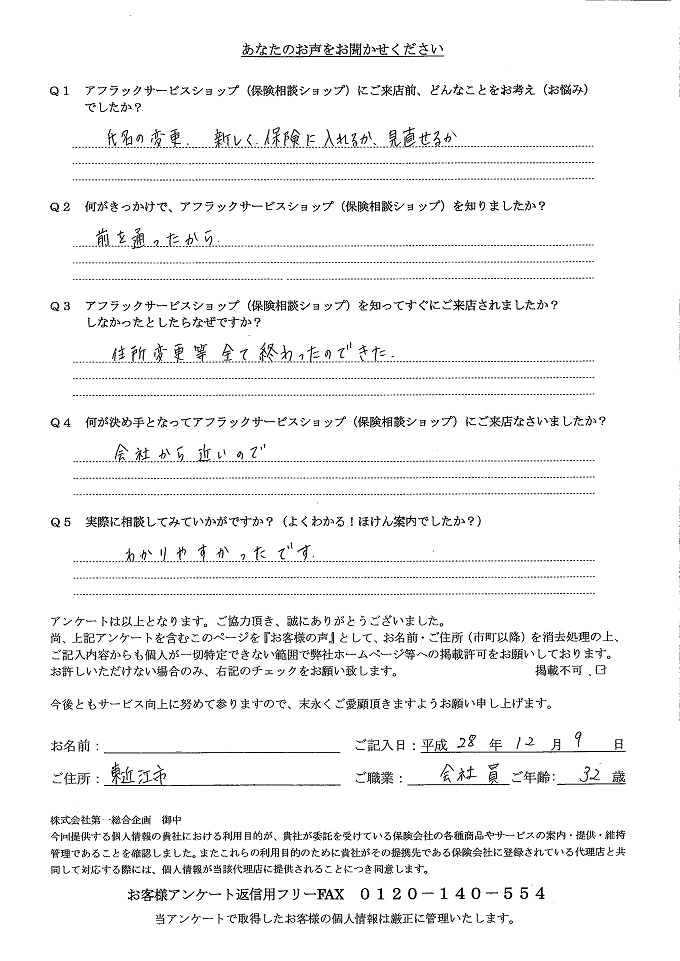 あなたのお声をお聞かせください
Q1 アフラックサービスショップ（保険相談ショップ）にご来店前、どんなことをお考え（お悩み）
でしたか？
氏名の変更. 新しく保険に入れるか、見直せるか
Q2 何がきっかけで、アフラックサービスショップ（保険相談ショップ）を知りましたか？
前を通ったから.
Q3 アフラックサービスショップ（保険相談ショップ）を知ってすぐにご来店されましたか？
しなかったとしたらなぜですか？
住所変更等 全て終わったのできた.
Q4 何が決め手となってアフラックサービスショップ（保険相談ショップ）にご来店なさいましたか？
会社から近いので
Q5 実際に相談してみていかがですか？（よくわかる！ほけん案内でしたか？）
わかりやすかったです.
アンケートは以上となります。ご協力頂き、誠にありがとうございました。
尚、上記アンケートを含むこのページを『お客様の声』として、お名前・ご住所（市町以降）を消去処理の上、
ご記入内容からも個人が一切特定できない範囲で弊社ホームページ等への掲載許可をお願いしております。
お許しいただけない場合のみ、右記のチェックをお願い致します。 掲載不可 □
今後ともサービス向上に努めて参りますので、末永くご愛顧頂きますようお願い申し上げます。
お名前： ご記入日：平成 28 年 12 月 9 日
ご住所：東近江市 ご職業： 会社員 ご年齢： 32 歳
株式会社第一総合企画 御中
今回提供する個人情報の貴社における利用目的が、貴社が委託を受けている保険会社の各種商品やサービスの案内・提供・維持
管理であることを確認しました。またこれらの利用目的のために貴社がその提携先である保険会社に登録されている代理店と共
同して対応する際には、個人情報が当該代理店に提供されることにつき同意します。
お客様アンケート返信用フリーFAX 0120－140－554
当アンケートで取得したお客様の個人情報は厳正に管理いたします。